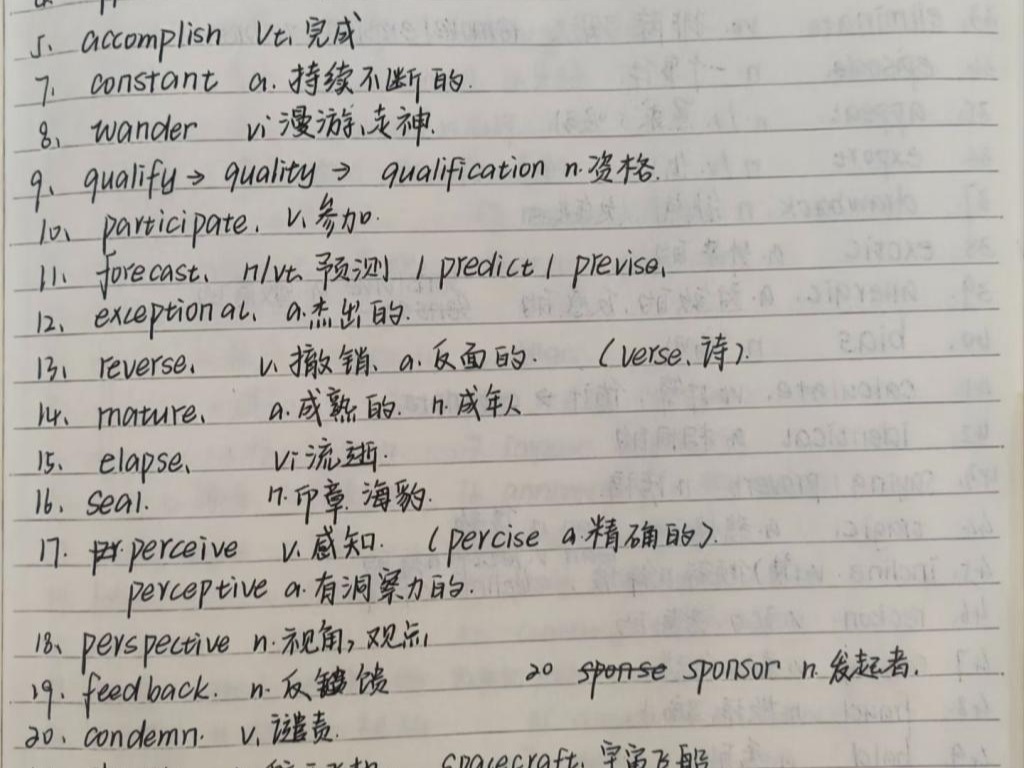 5、 accomplish vt. 完成
7、 constant a. 持续不断的.
8、 wander vi 漫游、走神.
9、 qualify → quality → qualification n. 资格.
10、 participate. v. 参加.
11、 forecast. n/vt. 预测 / predict / previse.
12、 exceptional. a. 杰出的.
13、 reverse. v. 撤销、a. 反面的. (verse. 诗).
14、 mature. a. 成熟的. n. 成年人
15、 elapse. vi 流逝.
16、 seal. n. 印章. 海豹.
17. perceive v. 感知. (percise a. 精确的).
perceptive a. 有洞察力的.
18、 perspective n. 视角, 观点
19、 feedback. n. 反馈
20 sponse sponsor n. 发起者.
20、 condemn. v. 谴责.
spacecraft. 宇宙飞船